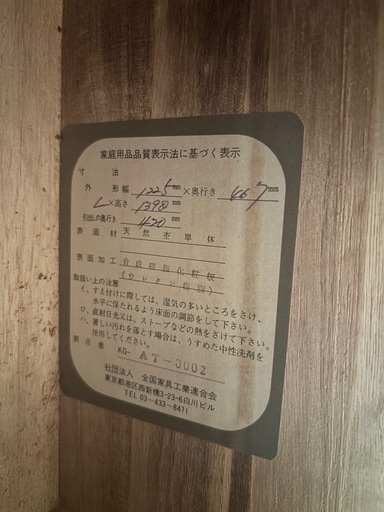 家庭用品品質表示法に基づく表示
寸 法
外 形 幅 1225mm×奥行き 467mm
×高さ 1398mm
引出しの奥行き 420mm
表 面 材 天 然 木 単 体
表 面 加 工 合成樹脂化粧板
(ウレタン樹脂)
取扱い上の注意
イ、すえ付けに際しては、湿気の多いところをさけ、
水平に保たれるよう床面の調節をして下さい。
ロ、直射日光又は、ストーブなどの熱をさけて下さい。
ハ、著しい汚れを落とす場合は、うすめた中性洗剤を
使用してください。
表 示 者 KG- AT-0002
社団法人 全国家具工業連合会
東京都港区西新橋3-23-6白川ビル
TEL 03-433-8471